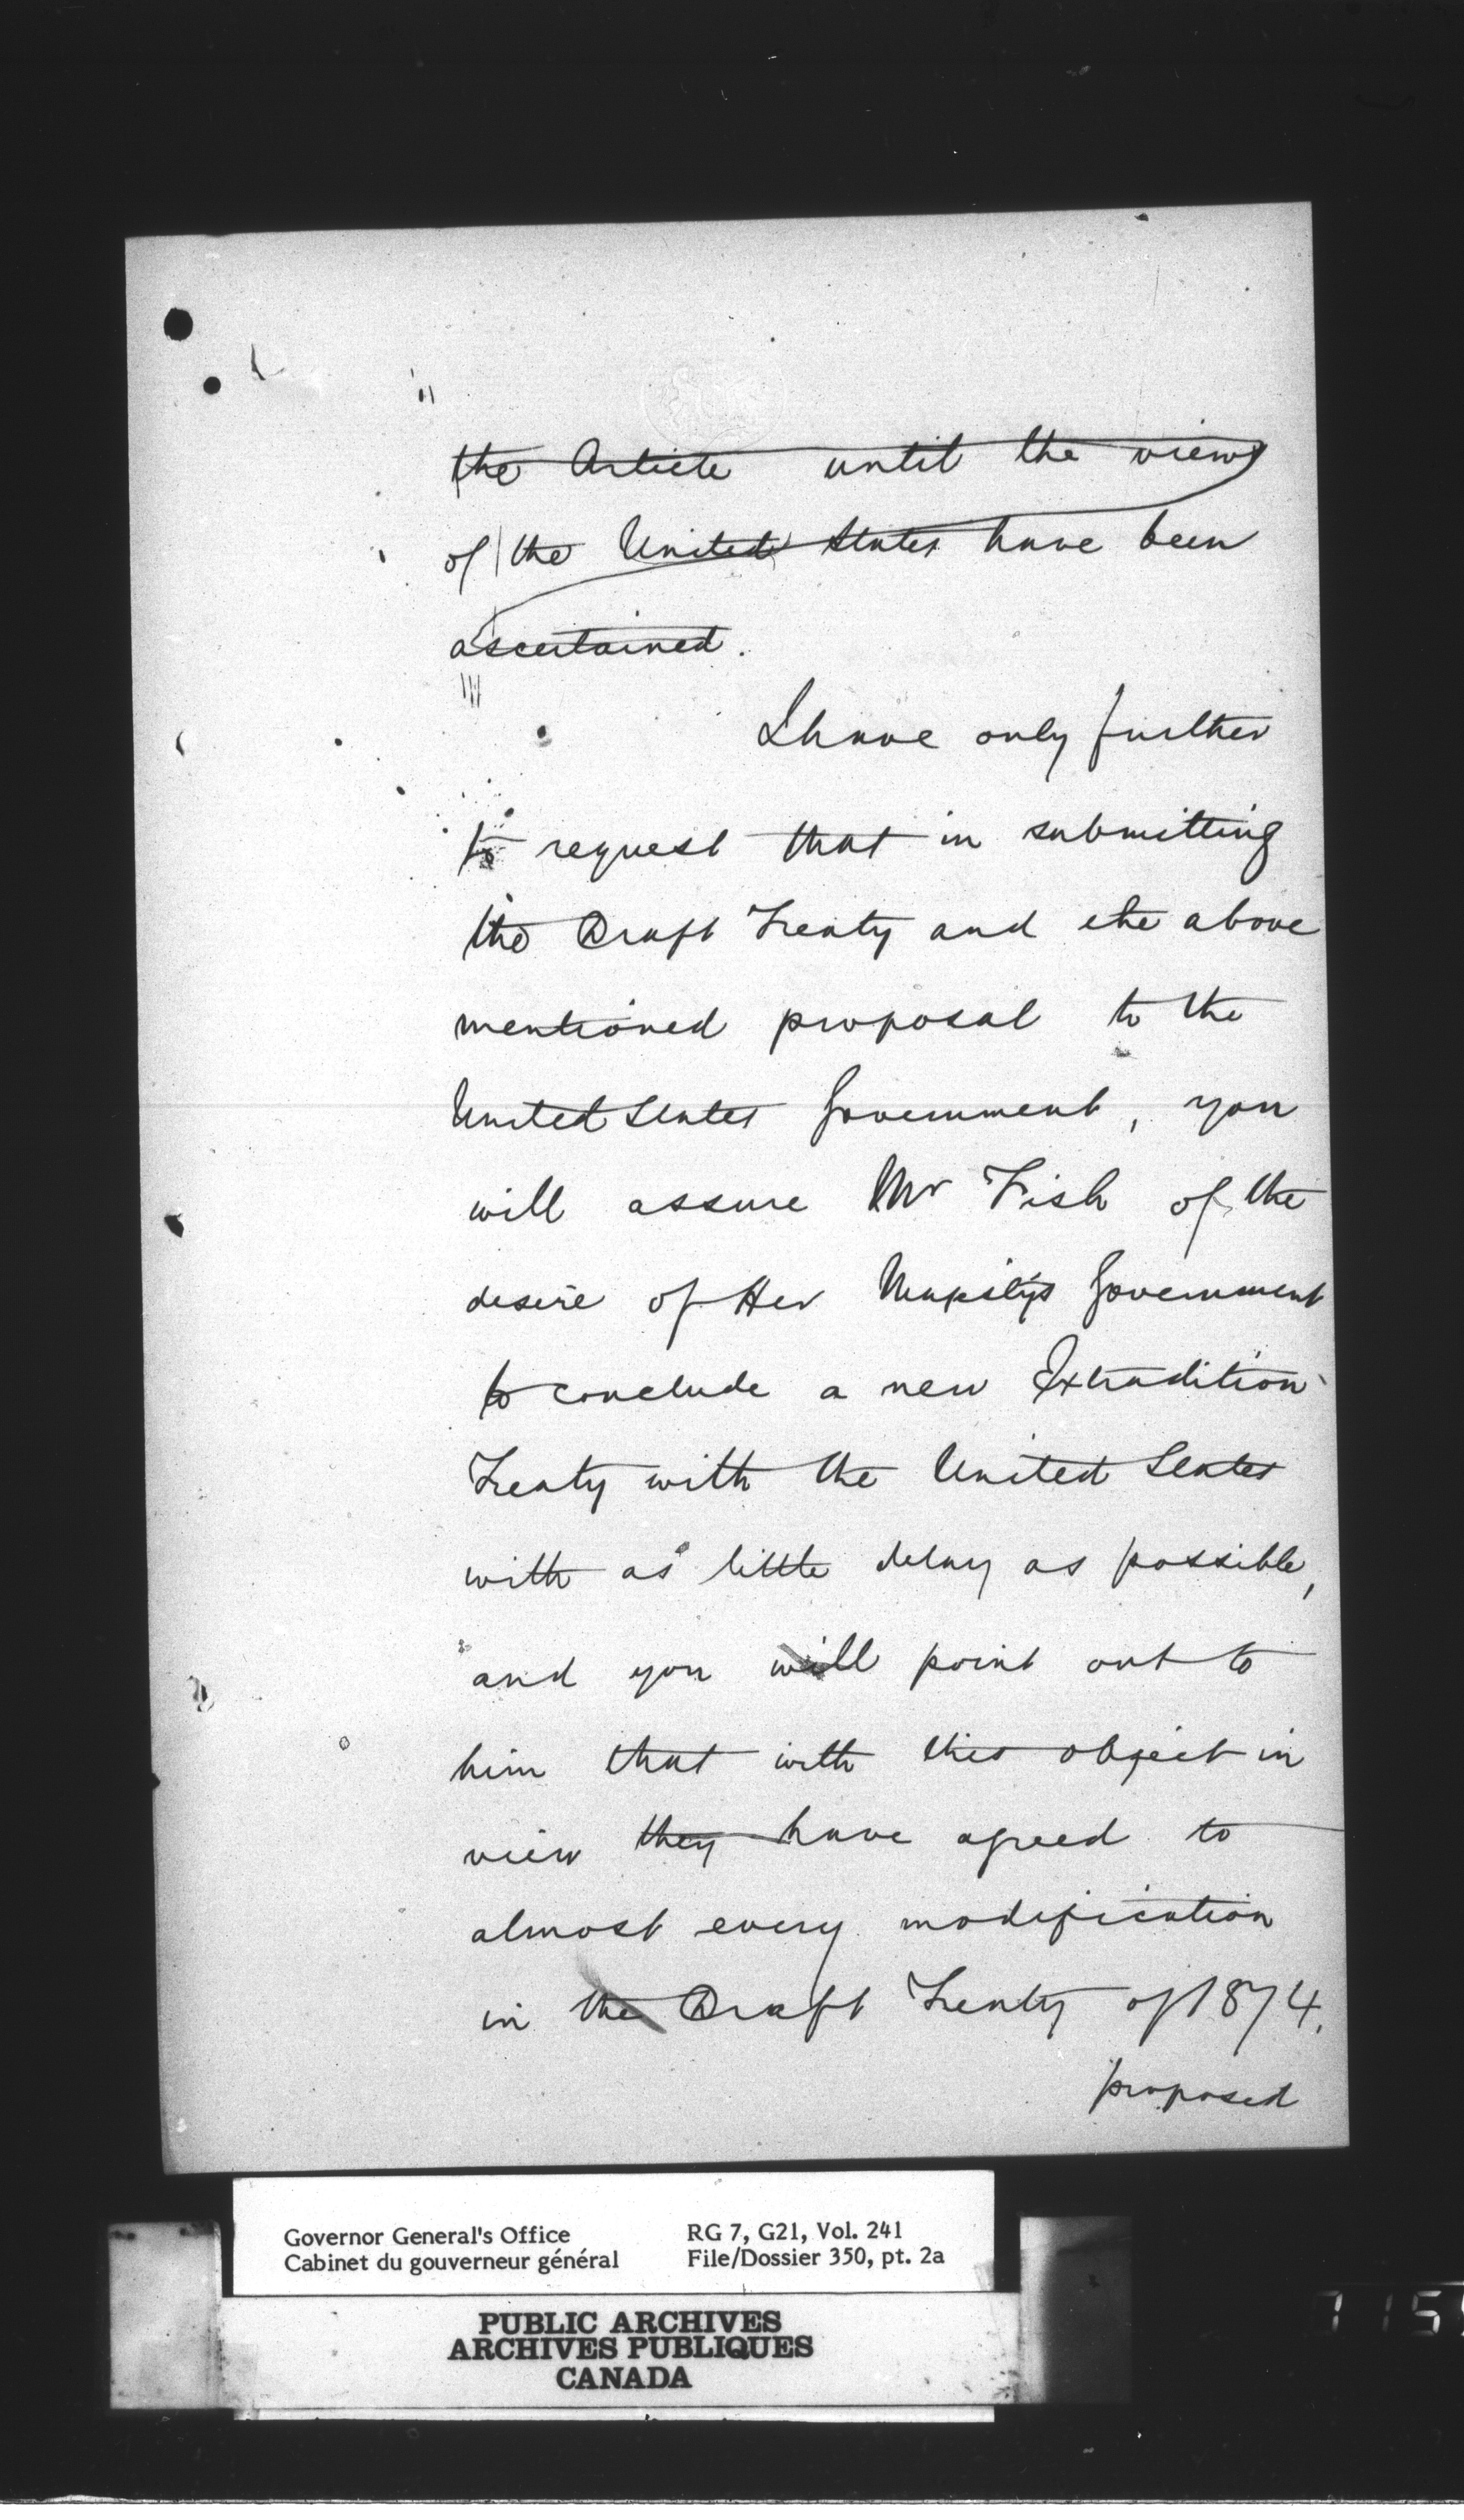 the Article until the views
of the United States have been
ascertained.
I have only further
to request that in submitting
the Draft Treaty and the above
mentioned proposal to the
United States Government, you
will assure Mr Fish of the
desire of Her Majesty's Government
to conclude a new Extradition
Treaty with the United States
with as little delay as possible,
and you will point out to
him that with this object in
view they have agreed to
almost every modification
in the Draft Treaty of 1874,
proposed
Governor General's Office RG 7, G21, Vol. 241
Cabinet du gouverneur général File/Dossier 350, pt. 2a
PUBLIC ARCHIVES
ARCHIVES PUBLIQUES
CANADA